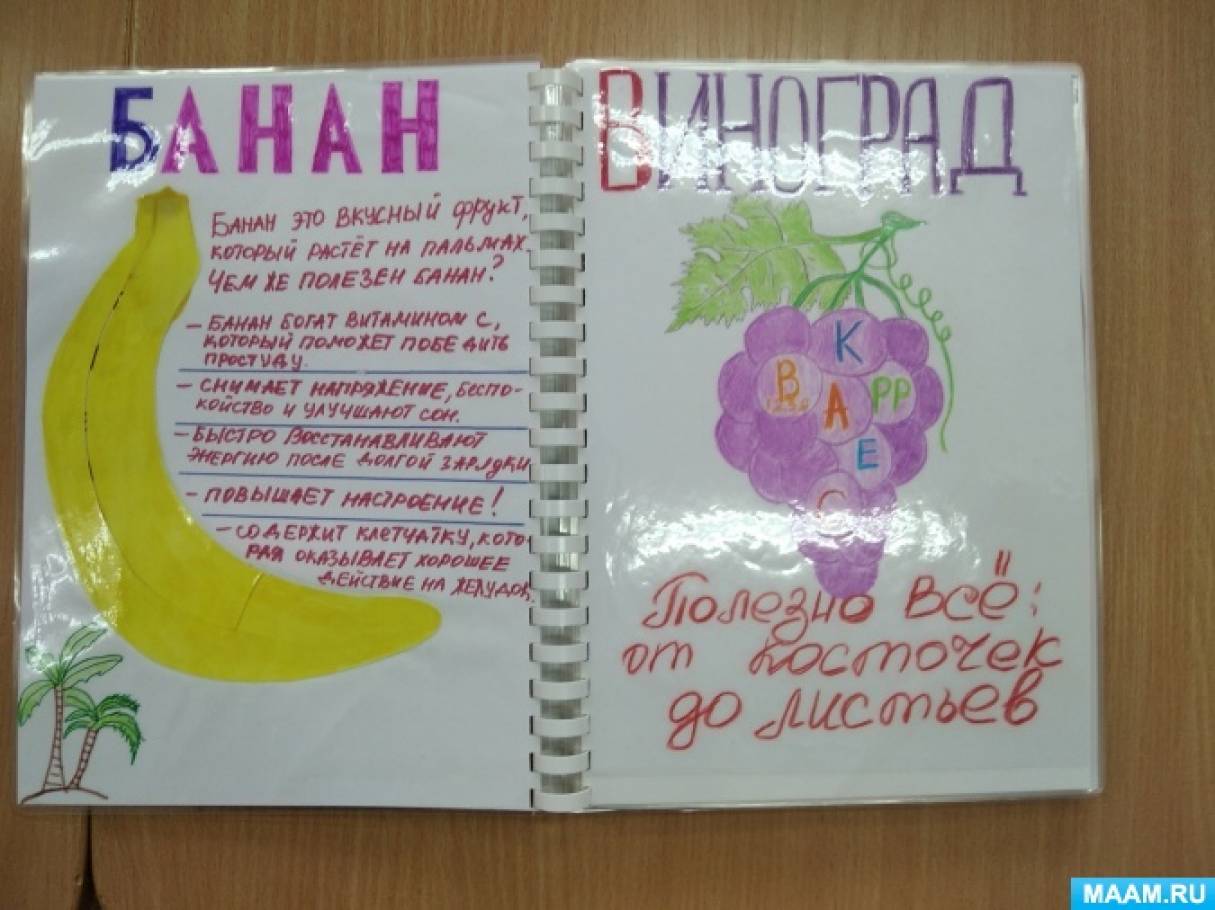 БАНАН
БАНАН ЭТО ВКУСНЫЙ ФРУКТ,
КОТОРЫЙ РАСТЁТ НА ПАЛЬМАХ.
ЧЕМ ЖЕ ПОЛЕЗЕН БАНАН?
– БАНАН БОГАТ ВИТАМИНОМ С,
КОТОРЫЙ ПОМОЖЕТ ПОБЕДИТЬ
ПРОСТУДУ.
– СНИМАЕТ НАПРЯЖЕНИЕ, БЕСПО-
КОЙСТВО И УЛУЧШАЮТ СОН.
– БЫСТРО ВОССТАНАВЛИВАЮТ
ЭНЕРГИЮ ПОСЛЕ ДОЛГОЙ ЗАРЯДКИ
– ПОВЫШАЕТ НАСТРОЕНИЕ!
– СОДЕРЖИТ КЛЕТЧАТКУ, КОТО-
РАЯ ОКАЗЫВАЕТ ХОРОШЕЕ
ДЕЙСТВИЕ НА ЖЕЛУДОК.
ВИНОГРАД
К
В А РР
Е
С
Полезно всё:
от косточек
до листьев
MAAM.RU